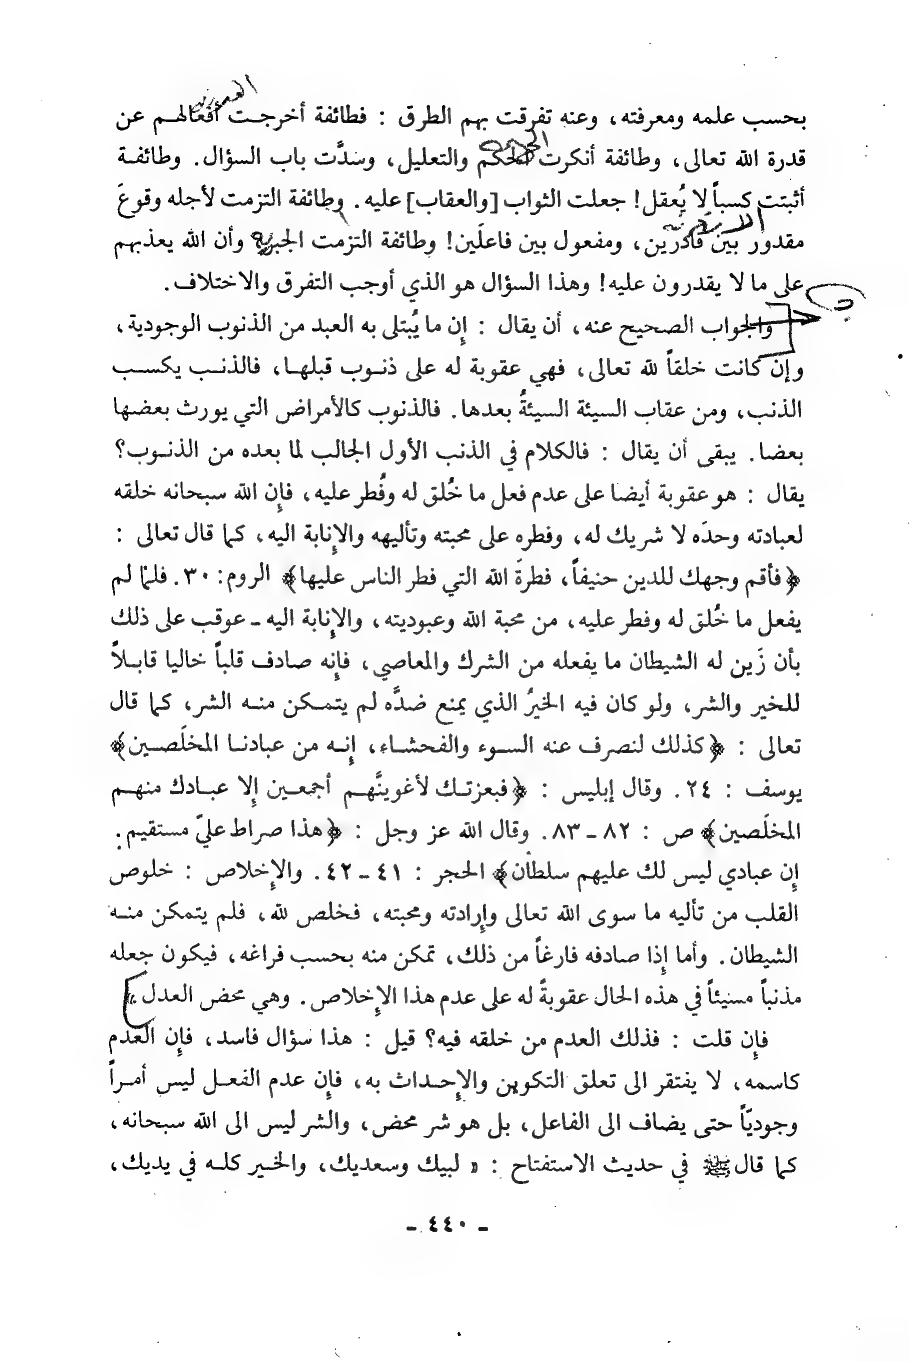 بحسب علمه ومعرفته، وعنه تفرقت بهم الطرق : فطائفة أخرجت أفعالهم عن
قدرة الله تعالى، وطائفة أنكرت الحكم والتعليل، وسدَّت باب السؤال. وطائفة
أثبتت كسباً لا يُعقل! جعلت الثواب [والعقاب] عليه. وطائفة التزمت لأجله وقوعَ
مقدور بين قادرَين، ومفعول بين فاعلَين! وطائفة التزمت الجبر، وأن الله يعذبهم
على ما لا يقدرون عليه! وهذا السؤال هو الذي أوجب التفرق والاختلاف.
والجواب الصحيح عنه، أن يقال : إن ما يُبتلى به العبد من الذنوب الوجودية،
وإن كانت خلقاً لله تعالى، فهي عقوبة له على ذنوب قبلها، فالذنب يكسب
الذنب، ومن عقاب السيئة السيئةُ بعدها. فالذنوب كالأمراض التي يورث بعضها
بعضا. يبقى أن يقال : فالكلام في الذنب الأول الجالب لما بعده من الذنوب؟
يقال : هو عقوبة أيضا على عدم فعل ما خُلق له وفُطر عليه، فإن الله سبحانه خلقه
لعبادته وحدَه لا شريك له، وفطره على محبته وتأليهه والإنابة اليه، كما قال تعالى :
﴿فأقم وجهك للدين حنيفاً، فطرةَ الله التي فطر الناس عليها﴾ الروم: ٣٠. فلمّا لم
يفعل ما خُلق له وفطر عليه، من محبة الله وعبوديته، والإنابة اليه ـ عوقب على ذلك
بأن زَين له الشيطان ما يفعله من الشرك والمعاصي، فإنه صادف قلباً خاليا قابلاً
للخير والشر، ولو كان فيه الخيرُ الذي يمنع ضدَّه لم يتمكن منه الشر، كما قال
تعالى : ﴿كذلك لنصرف عنه السوء والفحشاء، إنه من عبادنا المخلَصين﴾
يوسف : ٢٤. وقال إبليس : ﴿فبعزتك لأغوينَّهم أجمعين إلا عبادك منهم
المخلَصين﴾ ص : ٨٢ ـ ٨٣. وقال الله عز وجل : ﴿هذا صراط عليّ مستقيم.
إن عبادي ليس لك عليهم سلطان﴾ الحجر : ٤١ ـ ٤٢. والإخلاص : خلوص
القلب من تأليه ما سوى الله تعالى وإرادته ومحبته، فخلص لله، فلم يتمكن منه
الشيطان. وأما إذا صادفه فارغاً من ذلك، تمكن منه بحسب فراغه، فيكون جعله
مذنباً مسيئاً في هذه الحال عقوبةً له على عدم هذا الإخلاص. وهي محض العدل.
فإن قلت : فذلك العدم من خلقه فيه؟ قيل : هذا سؤال فاسد، فإن العدم
كاسمه، لا يفتقر الى تعلق التكوين والإحداث به، فإن عدم الفعل ليس أمراً
وجوديّاً حتى يضاف الى الفاعل، بل هو شر محض، والشر ليس الى الله سبحانه،
كما قال ﷺ في حديث الاستفتاح : « لبيك وسعديك، والخير كله في يديك،
ـ ٤٤٠ ـ